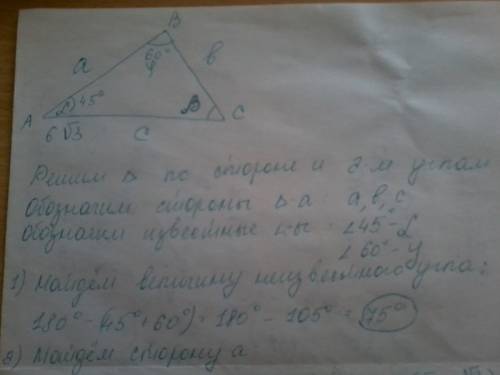 B
a
60°
γ
в
α) 45°
β
A
C
6√3
C
Решим Δ по стороне и 2-м углам
Обозначим стороны Δ-а: a, в, c
Обозначим известные ∠-ы: ∠45°-α
∠60°-γ
1) Найдём величину неизвестного угла:
180°-(45°+60°)=180°-105°=75°
2) Найдём сторону a